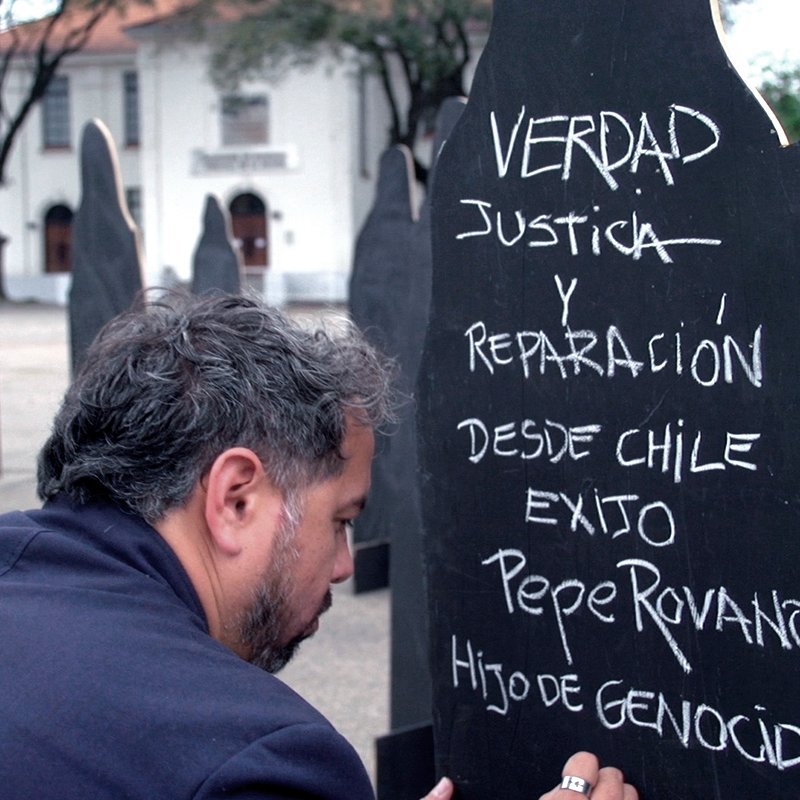 VERDAD
JUSTICIA
Y
REPARACIÓN
DESDE CHILE
EXIJO
Pepe ROVANO
HIJO DE GENOCID